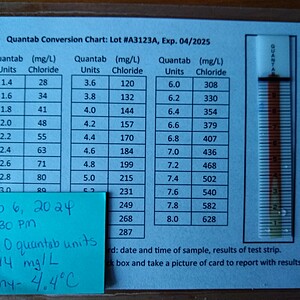 Quantab Conversion Chart: Lot #A3123A, Exp. 04/2025
uantab (mg/L) Quantab (mg/L) Quantab (mg/L)
Units Chloride Units Chloride Units Chloride
1.4 28 3.6 120 6.0 308
1.6 34 3.8 132 6.2 330
1.8 41 4.0 144 6.4 354
2.0 48 4.2 157 6.6 379
2.2 55 4.4 170 6.8 407
2.4 63 4.6 184 7.0 436
2.6 71 4.8 199 7.2 468
2.8 80 5.0 215 7.4 502
3.0 89 5.2 231 7.6 540
249 7.8 582
268 8.0 628
287
6, 2024
30 PM
0 quantab units
mg/L
4.4°C
rd: date and time of sample, results of test strip.
ck box and take a picture of card to report with results
QUANTAB